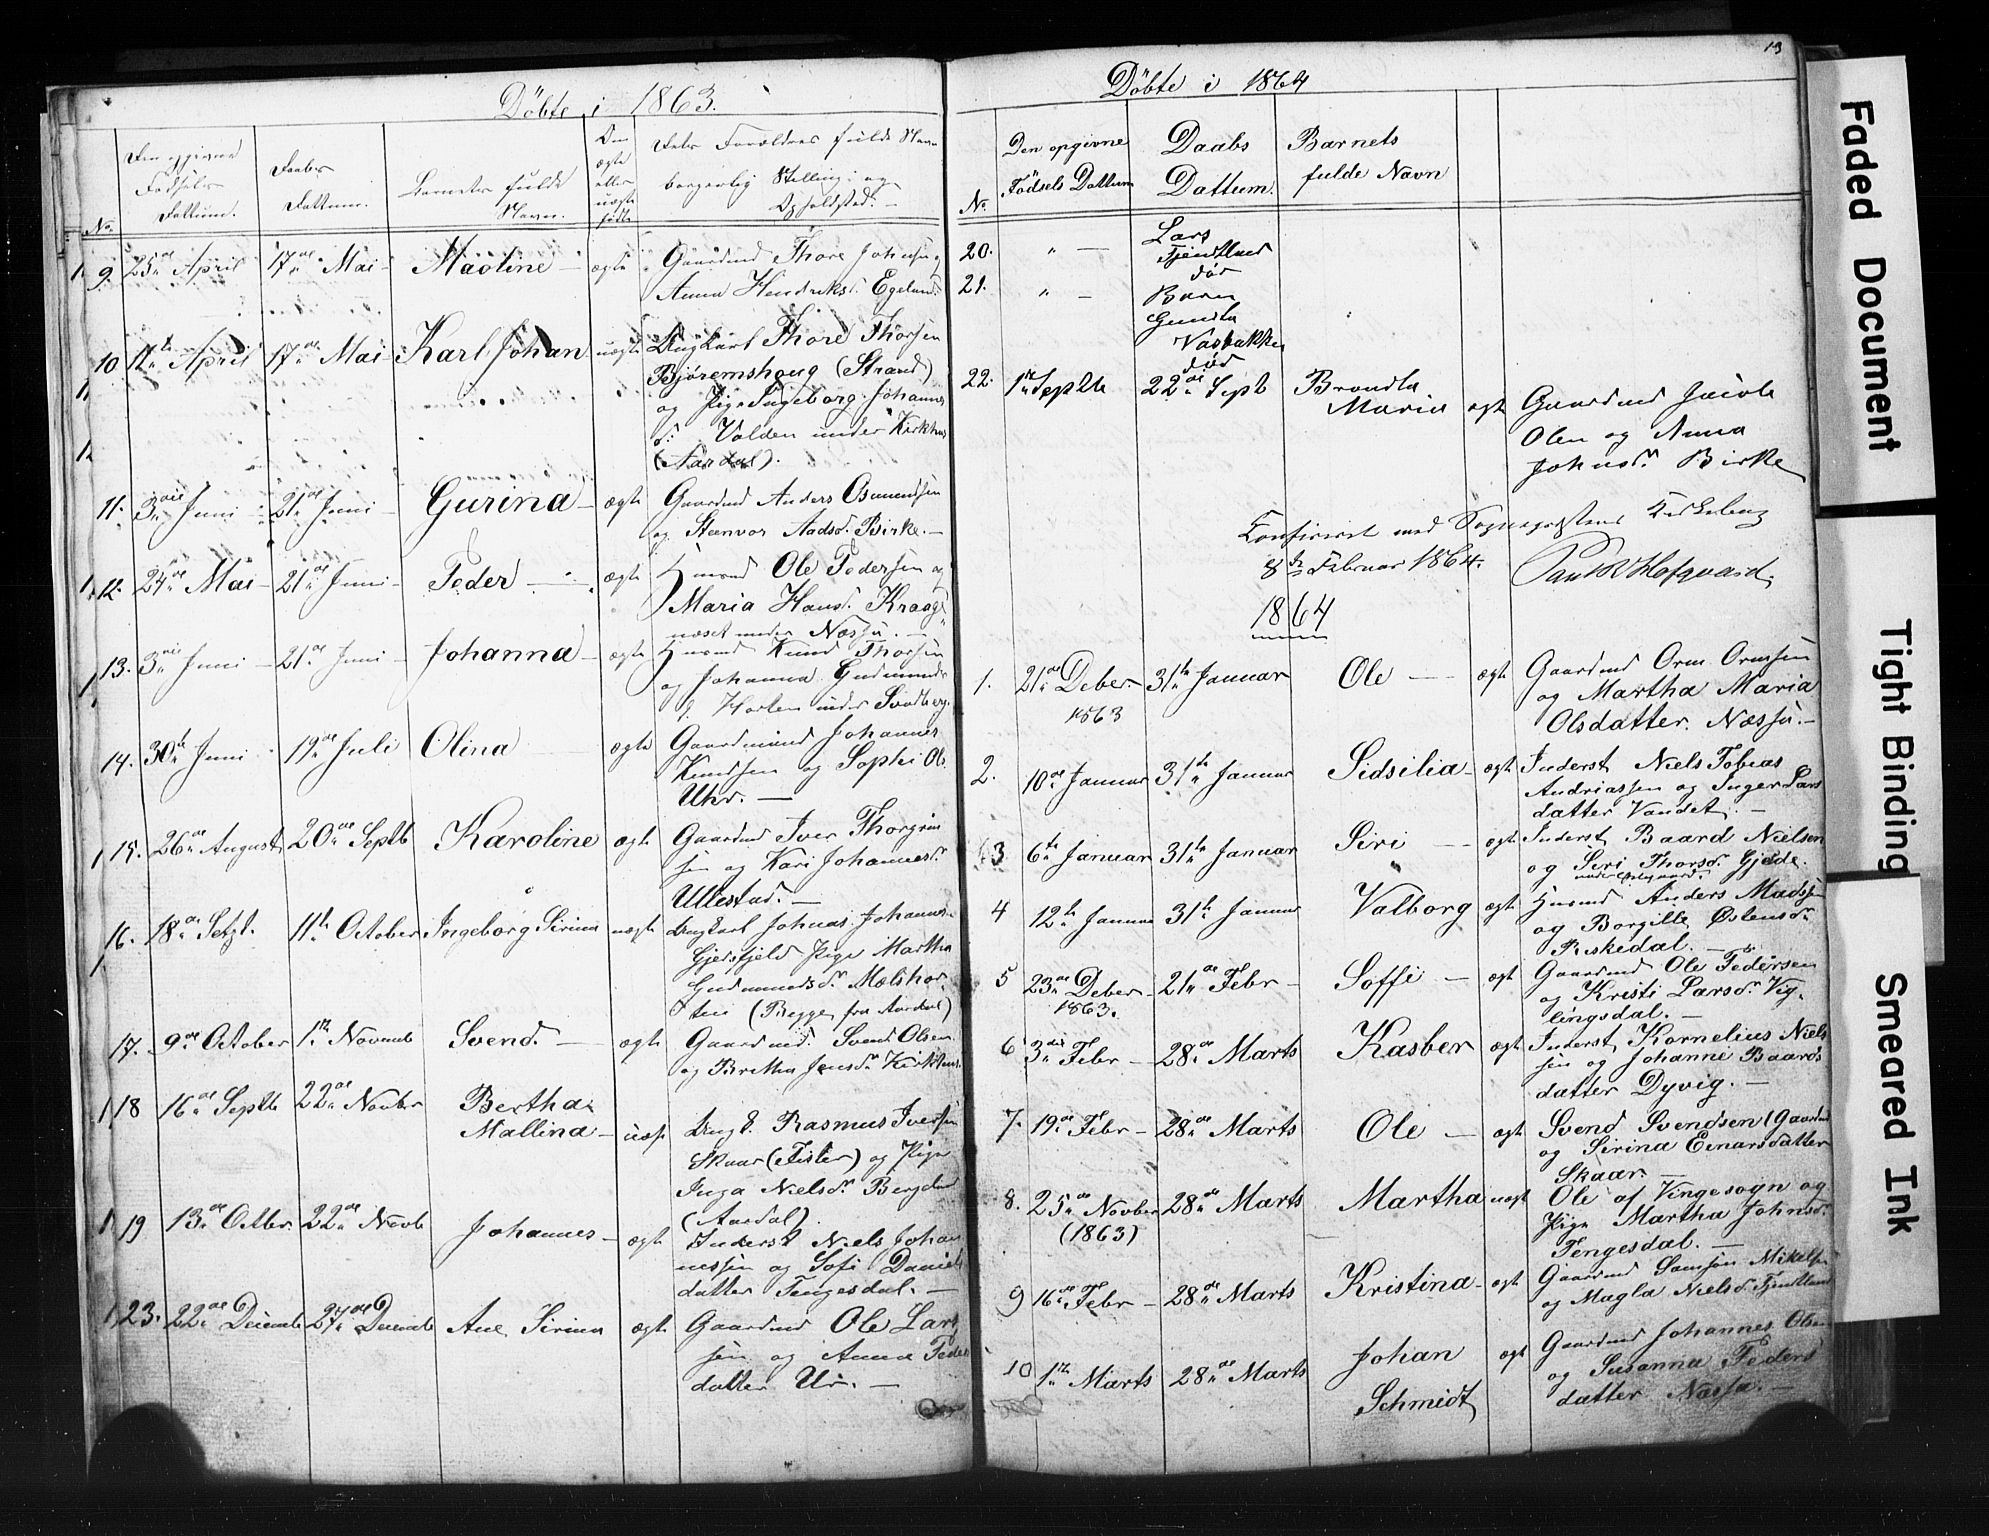 Döbte i 1863.
No.
Den opgivne Fødsels Dattum.
Daabs Dattum.
Barnets fulde Navn.
Den ægte eller uægte fødte
Dets Forældres fulde Navn
borgerlig Stilling og
Opholdsted. —
9. 25de April 17de Mai Maoline — ægte Gaardmd Thore Johnsen og
Anna Hendriksd. Egeland.
10 12te April 17de Mai Karl Johan uægte Ungkarl Thore Thorsen
Bjøremshoug (Strand)
og Pige Ingeborg Johannes
d: Volden under Kirkhus
(Aardal).
11. 3die Juni 21de Juni — Gurina — ægte Gaardmd Anders Osmundsen
og Stenvor Aadsd. Birke. —
12. 24de Mai 21de Juni — Peder — ægte Husmd Ole Pedersen og
Maria Hansd. Kraag-
næset under Næssa. —
13. 3die Juni 21de Juni — Johanna — ægte Husmd Knud Thorsen
og Johanna Gudmunds
d. Horten under
14. 30te Juni 19de Juli Olina — ægte Gaardmand Johannes
Knudsen og Sophi Ols
Uhr. —
15. 26de August 20de Septb Karoline ægte Gaardmd Iver Thorgrim
sen og Kari Johannesd.
Ullestad. —
16. 18de Sept. 11te October Ingeborg Sirina uægte Ungkarl Johnas Johannes.
Gjersfjeld Pige Martha
Gudmundsdr. Mælshor-
ten (Begge fra Aardal)
17. 9de October 1te Novemb Svend. — ægte Gaardmd. Svend Olsen
og Britha Jensdr. Kirkhus.
18 16de Septb 22de Novbr Bertha
Mallina — uægt Ungk. Rasmus Iversen
Skaar (Fister) og Pige
Inga Nielsdr. Bergeland
(Aardal).
19 13de Octbr. 22de Novb Johannes — ægte Inderst Niels Johan
nessen og Sofi Daniels
datter Tengesdal. —
23. 22de Decemb 27de Decemb Ane Sirina ægte Gaardmd Ole Lars
sen og Anna Peders
datter Ur. —
13
Döbte i 1864
No.
Den opgivne Födsels Dattum
Daabs Dattum.
Barnets fulde Navn
20. " — Lars
Fjendtland
död
21. " — Barn
Gunila
Vasbakken
död
22. 1ste Septb 22de Sept Brondla
Maria ægt Gaardmd Jacob
Olsen og Anna
Johnsdr. Birke
Konfereret med Sognepræstens Kirkebog
8de Februar 1864. Paul R Hofgaard.
1864
1. 21de Deber. 31te Januar Ole — ægt Gaardmd Orm Ormsen
1863 og Martha Maria
Olsdatter. Næssa. —
2. 10de Januar 31te Januar Sidsilia — ægt Inderst Niels Tobias
Andriassen og Inger Lars
datter Vandet. —
3 6te Januar 31te Januar Siri — ægt Inderst Baard Nielsen
og Siri Thorsdr. Gjøde.
4 12te Januar 31te Januar Valborg ægt Husmd Anders Madssen
og Borgille Østensdr.
Riskedal. —
5 23de Deber 21de Febr — Soffi — ægt Gaardmd Ole Pedersen
1863. og Kristi Larsdr. Vig-
lingsdal. —
6 3die Febr — 28de Marts Kasber ægt Inderst Kornelius Niels
sen og Johanne Baards
datter Dyvig. —
7. 19de Febr — 28de Marts Ole — ægt Svend Svendsen (Gaardmd
og Sirina Einarsdatter
Skaar —
8. 25de Novber 28de Marts Martha uægt Ole af Vingesogn og
(1863) Pige Martha Johnsd.
Tengesdal. —
9 16de Febr — 28de Marts Kristina — ægt Gaardmd Samson Mikelsen
og Magla Nielsd. Fjendtland
10 1ste Marts 28de Marts Johan ægt Gaardmd Johannes Olsen
Schmidt og Susanna Peders
datter Næssa. —
Faded Document
Tight Binding
Smeared Ink